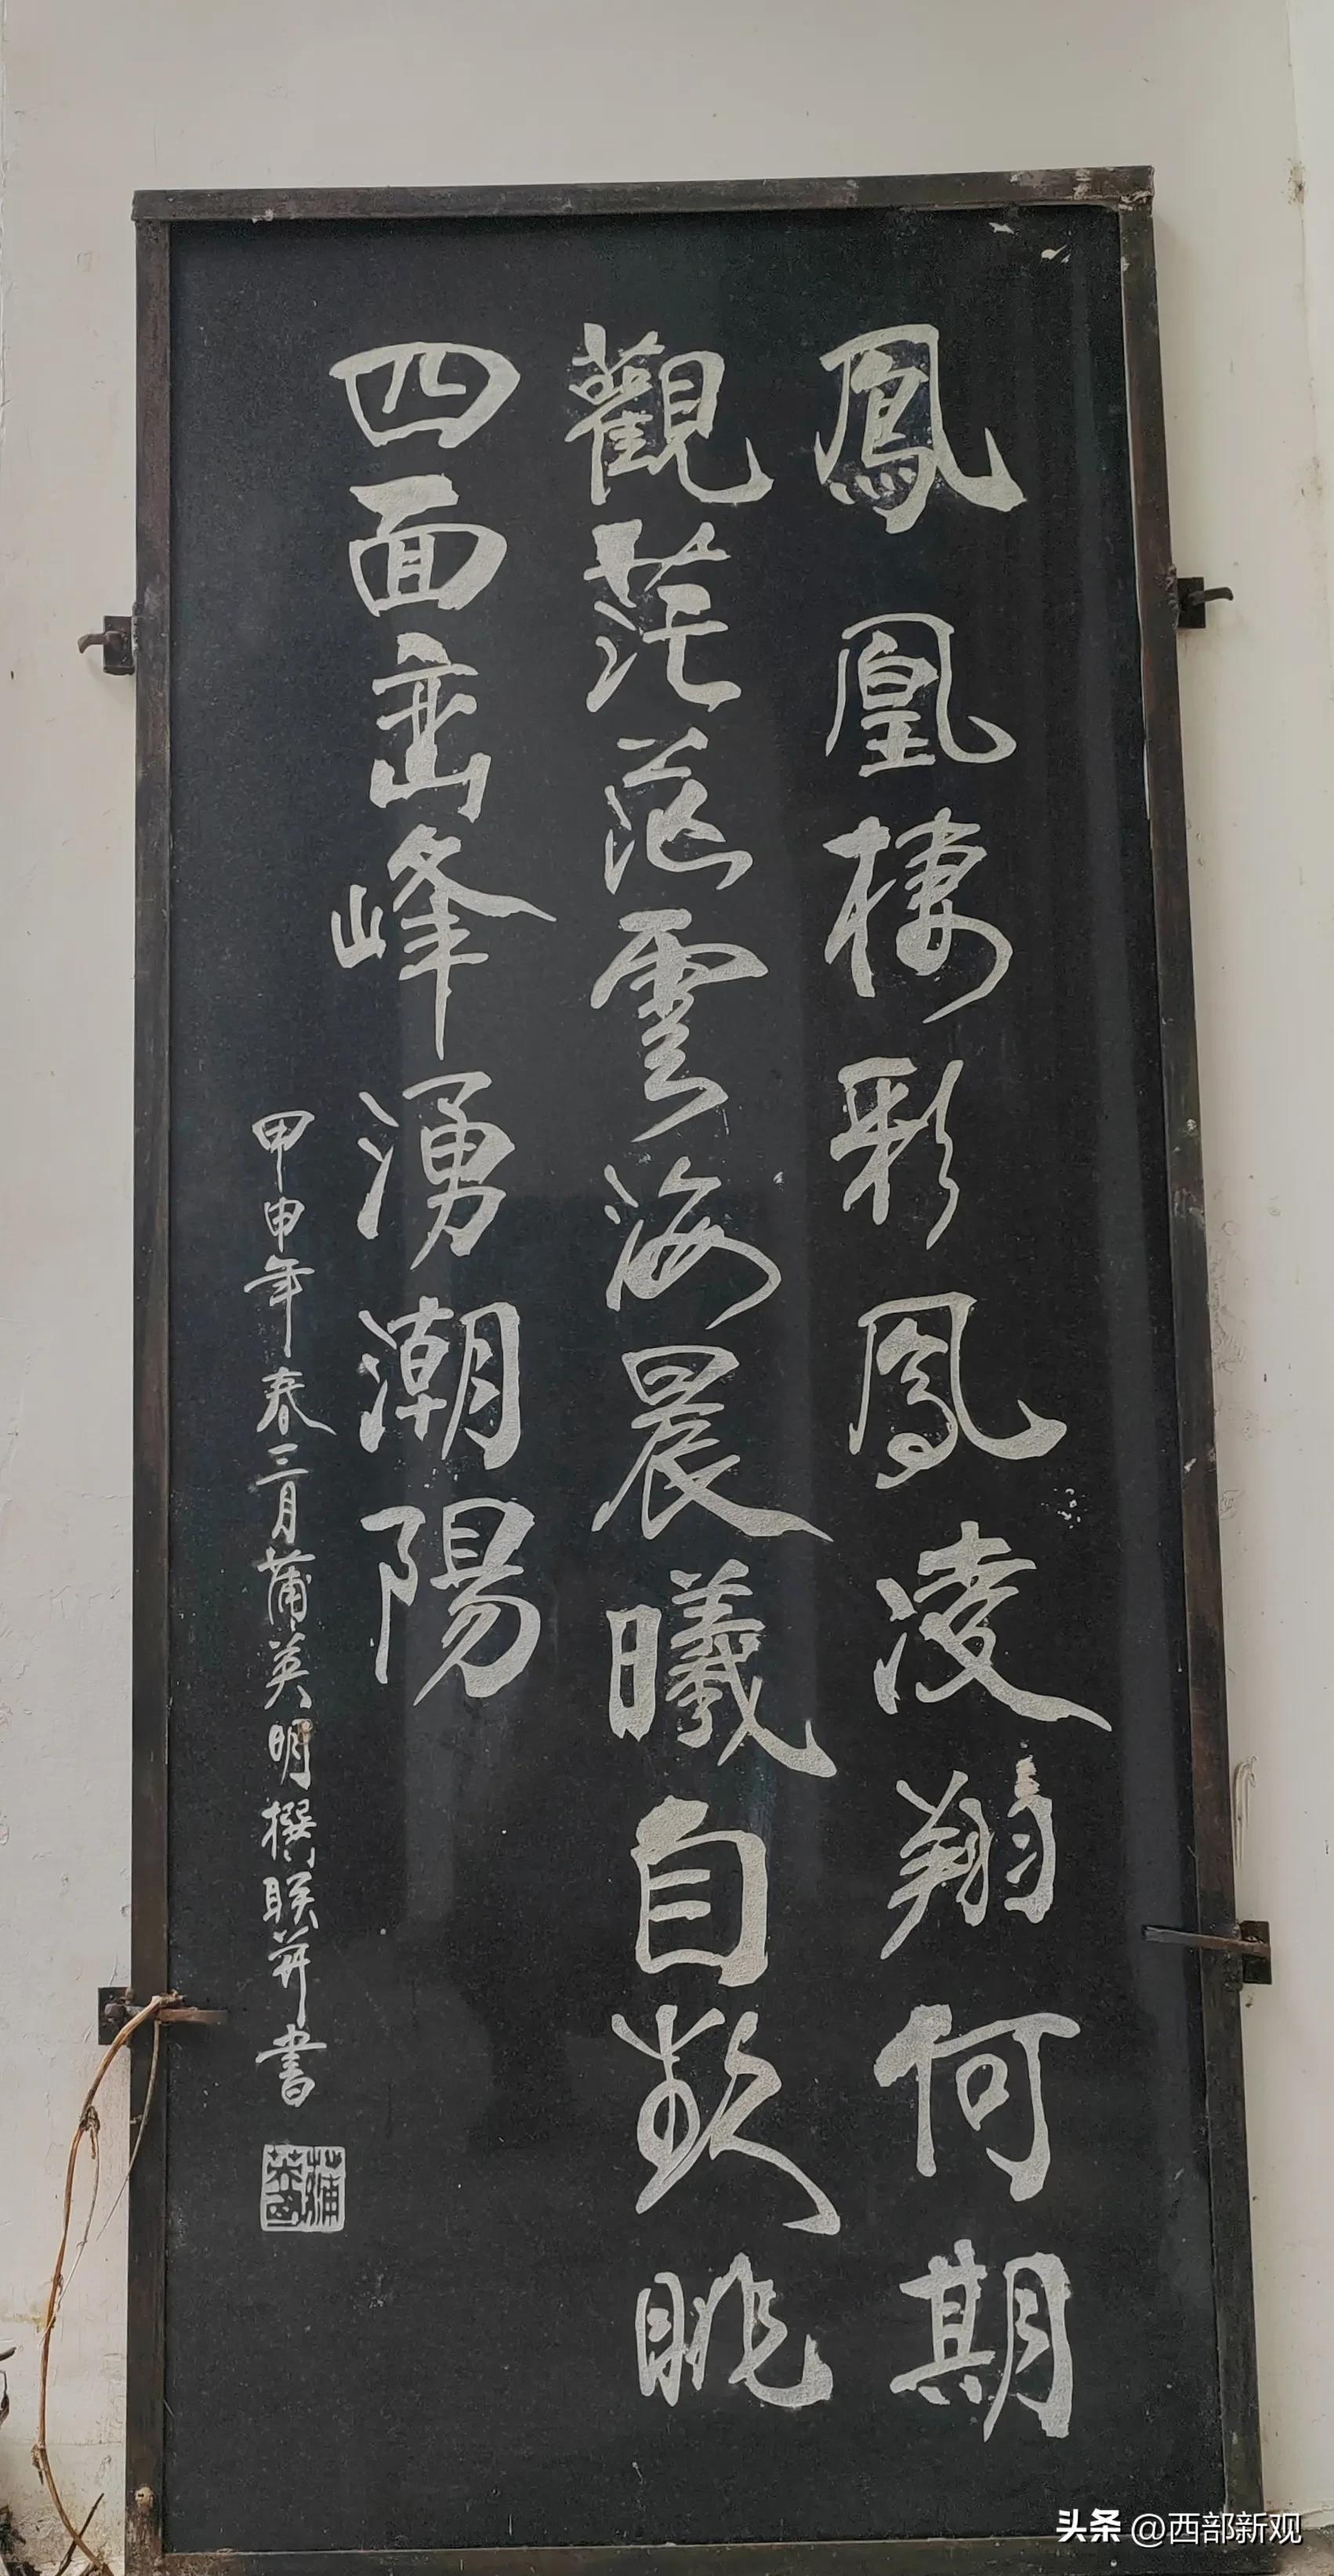 鳳凰棲彩鳳凌翔何期
觀茫茫雲海晨曦自欵眺
四面峦峰湧潮陽
甲申年春三月蒲英明撰联并書
蒲英明
头条 @西部新观